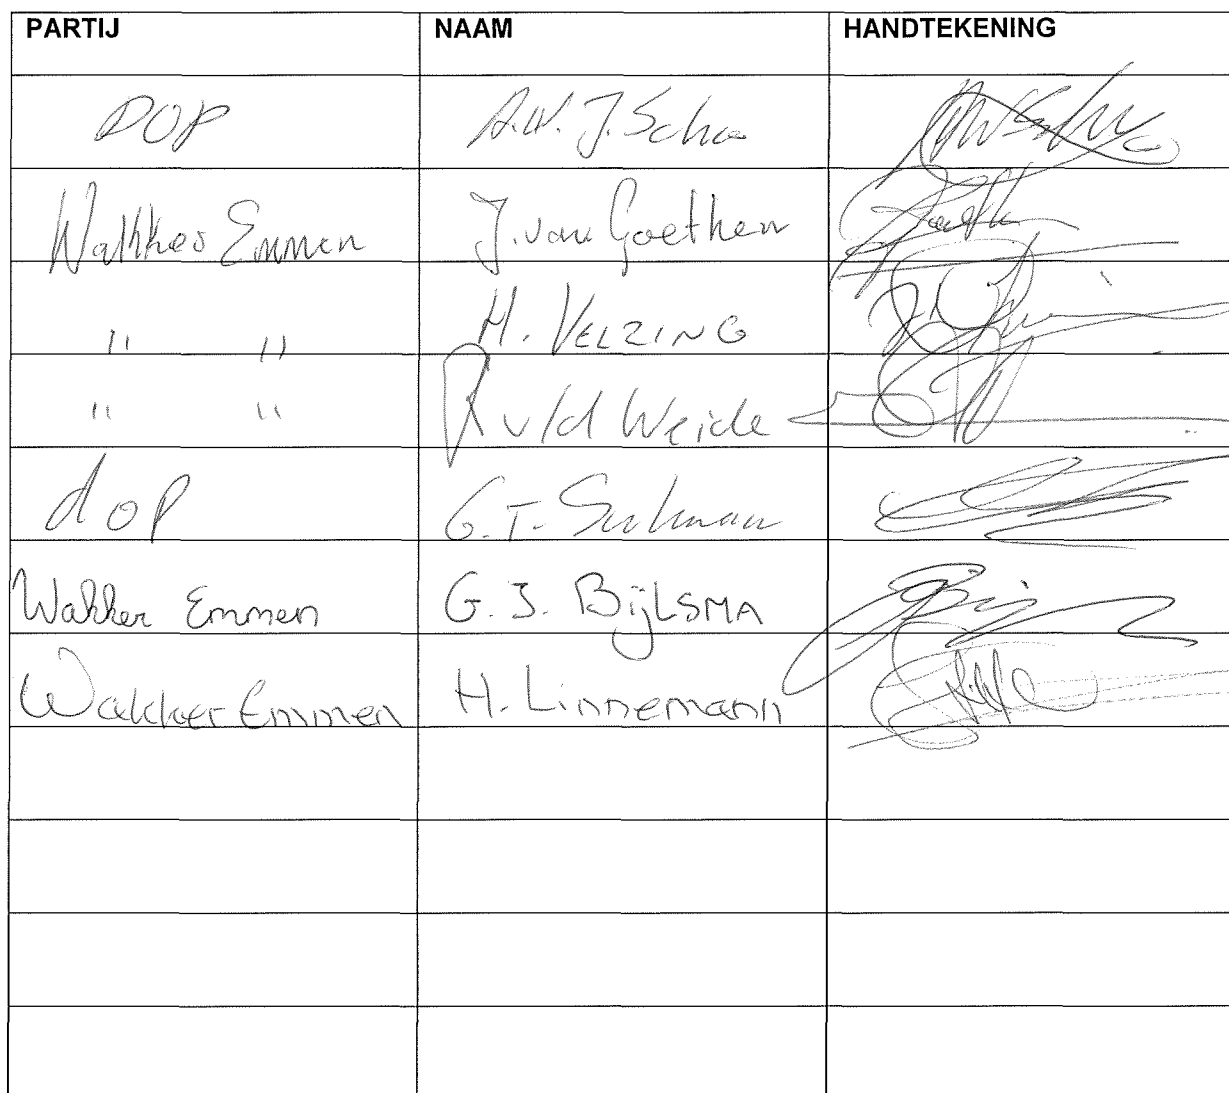 PARTIJ NAAM HANDTEKENING
DOP A.W.J. Schoo
Wakker Emmen J. van Goethem
" " H. VELZING
" " R v/d Weide
dOP G.T.
Wakker Emmen G.J. BijLSMA
Wakker Emmen H. Linnemann